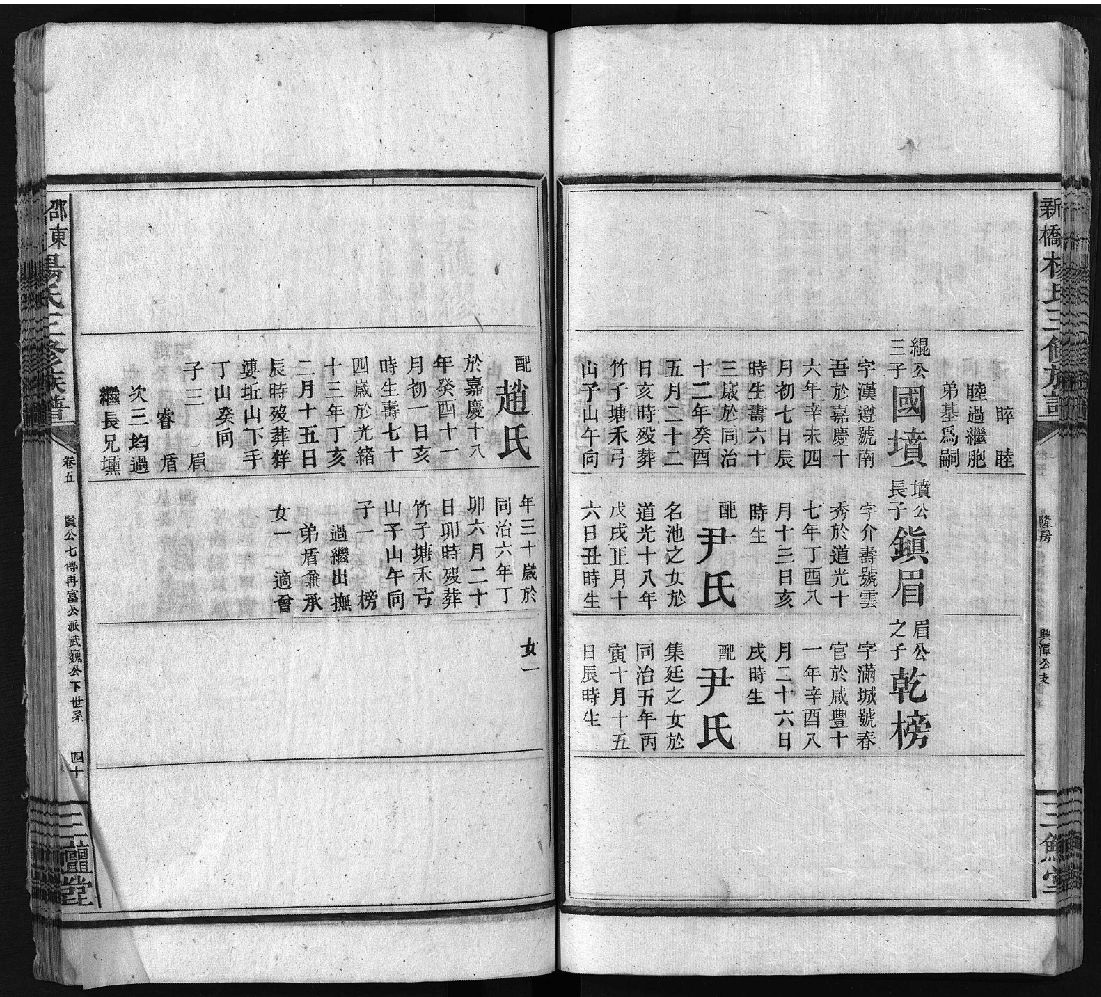 新橋楊氏三修族譜
隆房
三鱣堂
睟 睦
睦過繼胞
弟基爲嗣
緄公三子國墳
字漢遵號南
吾於嘉慶十
六年辛未四
月初七日辰
時生壽六十
三歲於同治
十二年癸酉
五月二十二
日亥時殁葬
竹子塘禾弓
山子山午向
配趙氏
於嘉慶十八
年癸酉十一
月初一日亥
時生壽七十
四歲於光緒
十三年丁亥
二月十五日
辰時殁葬
坵山下手
丁山癸向
子三 眉
睿 盾
次三均過
繼長兄壎
墳公長子鎮眉
字介壽號雲
秀於道光十
七年丁酉八
月十三日亥
時生
配尹氏
名池之女於
道光十八年
戊戌正月十
六日丑時生
年三十歲於
同治六年丁
卯六月二十
日卯時殁葬
竹子塘禾弓
山子山午向
子一 榜
過繼出撫
弟盾兼承
女一 適曾
眉公之子乾榜
字滿城號春
官於咸豐十
一年辛酉八
月二十六日
戌時生
配尹氏
集廷之女於
同治五年丙
寅十月十五
日辰時生
女一
邵東楊氏三修族譜
卷五
公七傳再富公派武魏公下世系
四十
三鱣堂